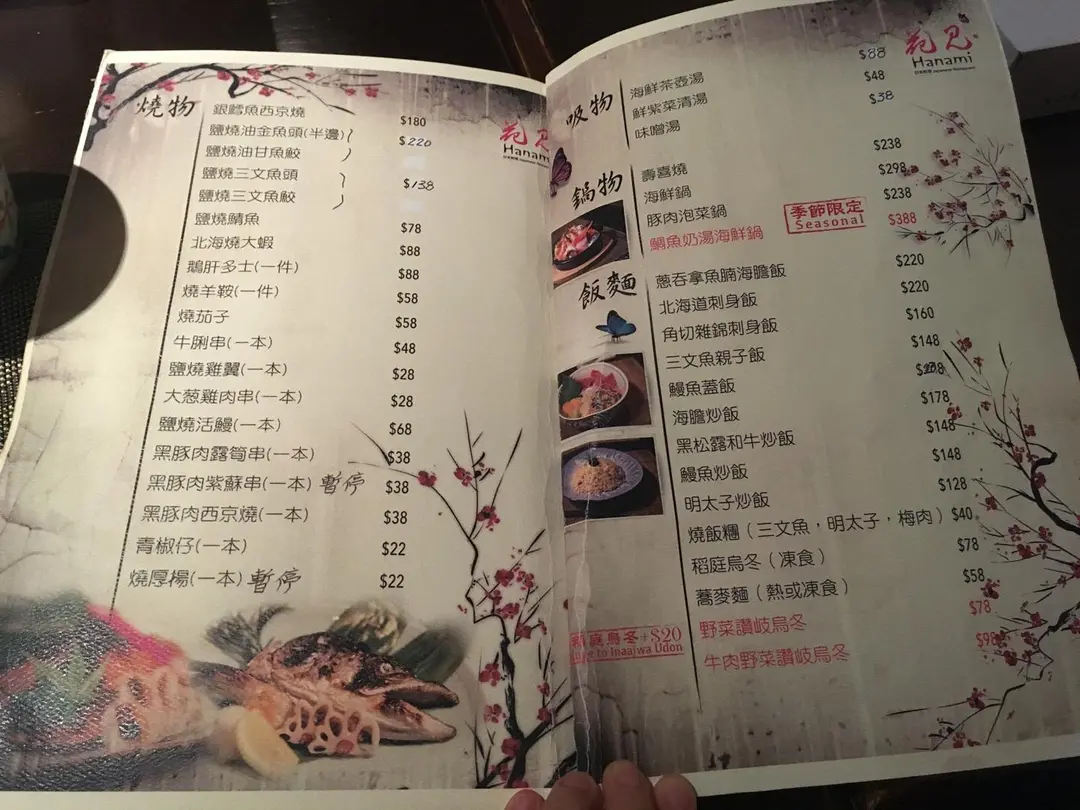 花見
Hanami
燒物
銀鱈魚西京燒 $180
鹽燒油金魚頭(半邊) $220
鹽燒油甘魚鮫
鹽燒三文魚頭 $138
鹽燒三文魚鮫
鹽燒鯖魚 $78
北海燒大蝦 $88
鵝肝多士(一件) $88
燒羊鞍(一件) $58
燒茄子 $58
牛脷串(一本) $48
鹽燒雞翼(一本) $28
大葱雞肉串(一本) $28
鹽燒活鰻(一本) $68
黑豚肉露筍串(一本) $38
黑豚肉紫蘇串(一本) 暫停 $38
黑豚肉西京燒(一本) $38
青椒仔(一本) $22
燒厚揚(一本) 暫停 $22
花見
Hanami
吸物
海鮮茶壺湯 $88
鮮紫菜清湯 $48
味噌湯 $38
鍋物
壽喜燒 $238
海鮮鍋 $298
豚肉泡菜鍋 $238
鯛魚奶湯海鮮鍋 季節限定 Seasonal $388
飯麵
蔥吞拿魚腩海膽飯 $220
北海道刺身飯 $220
角切雜錦刺身飯 $160
三文魚親子飯 $148
鰻魚蓋飯
海膽炒飯 $178
黑松露和牛炒飯 $148
鰻魚炒飯 $148
明太子炒飯 $128
燒飯糰（三文魚，明太子，梅肉） $40
稻庭烏冬（凍食） $78
蕎麥麵（熱或凍食） $58
野菜讚岐烏冬 $78
牛肉野菜讚岐烏冬 $98
庭烏冬+$20
to Inaniwa Udon